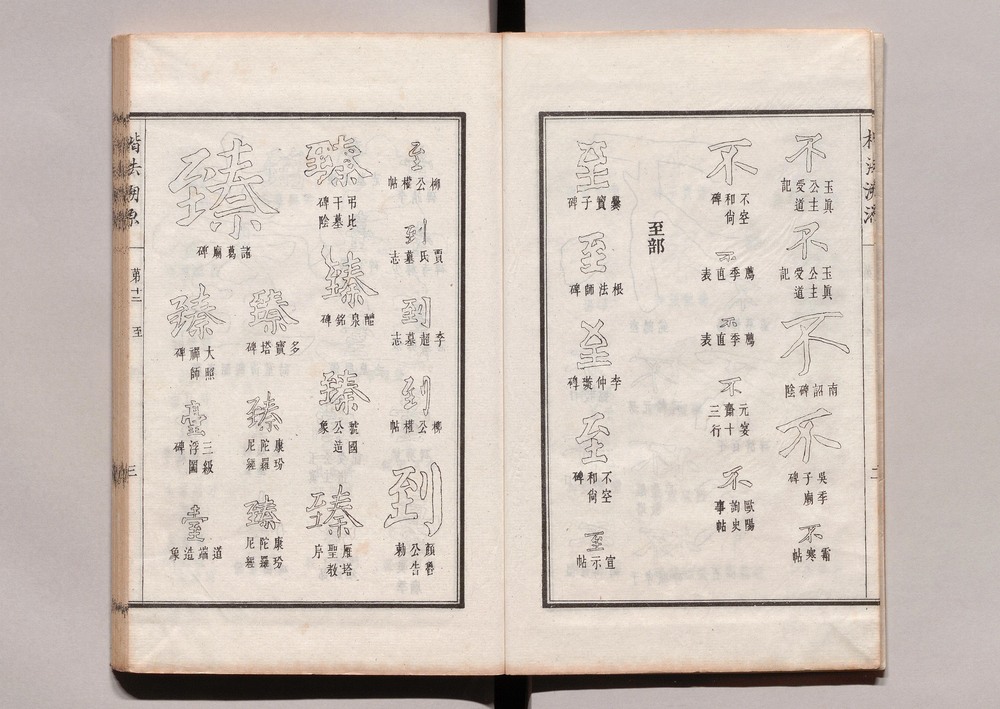 楷法溯源
二
不
玉眞公主受道記
不
玉眞公主受道記
不
南詔碑陰
不
吳季子廟碑
不
霜寒帖
不
不空和尙碑
不
薦季直表
不
薦季直表
不
元宴齋十三行
不
歐陽詢史事帖
至部
至
爨寶子碑
至
根法師碑
至
李仲璇碑
至
不空和尙碑
至
宣示帖
至
柳公權帖
到
賈氏墓志
到
李超墓志
到
柳公權帖
到
顏魯公告勅
臻
弔比干墓碑陰
臻
醴泉銘碑
臻
虢國公造象
臻
雁塔聖教序
臻
多寶塔碑
臻
康玢陀羅尼經
臻
康玢陀羅尼經
臻
諸葛廟碑
臻
大照禪師碑
臺
三級浮圖碑
臺
道端造象
楷法溯源
第十二
至
三